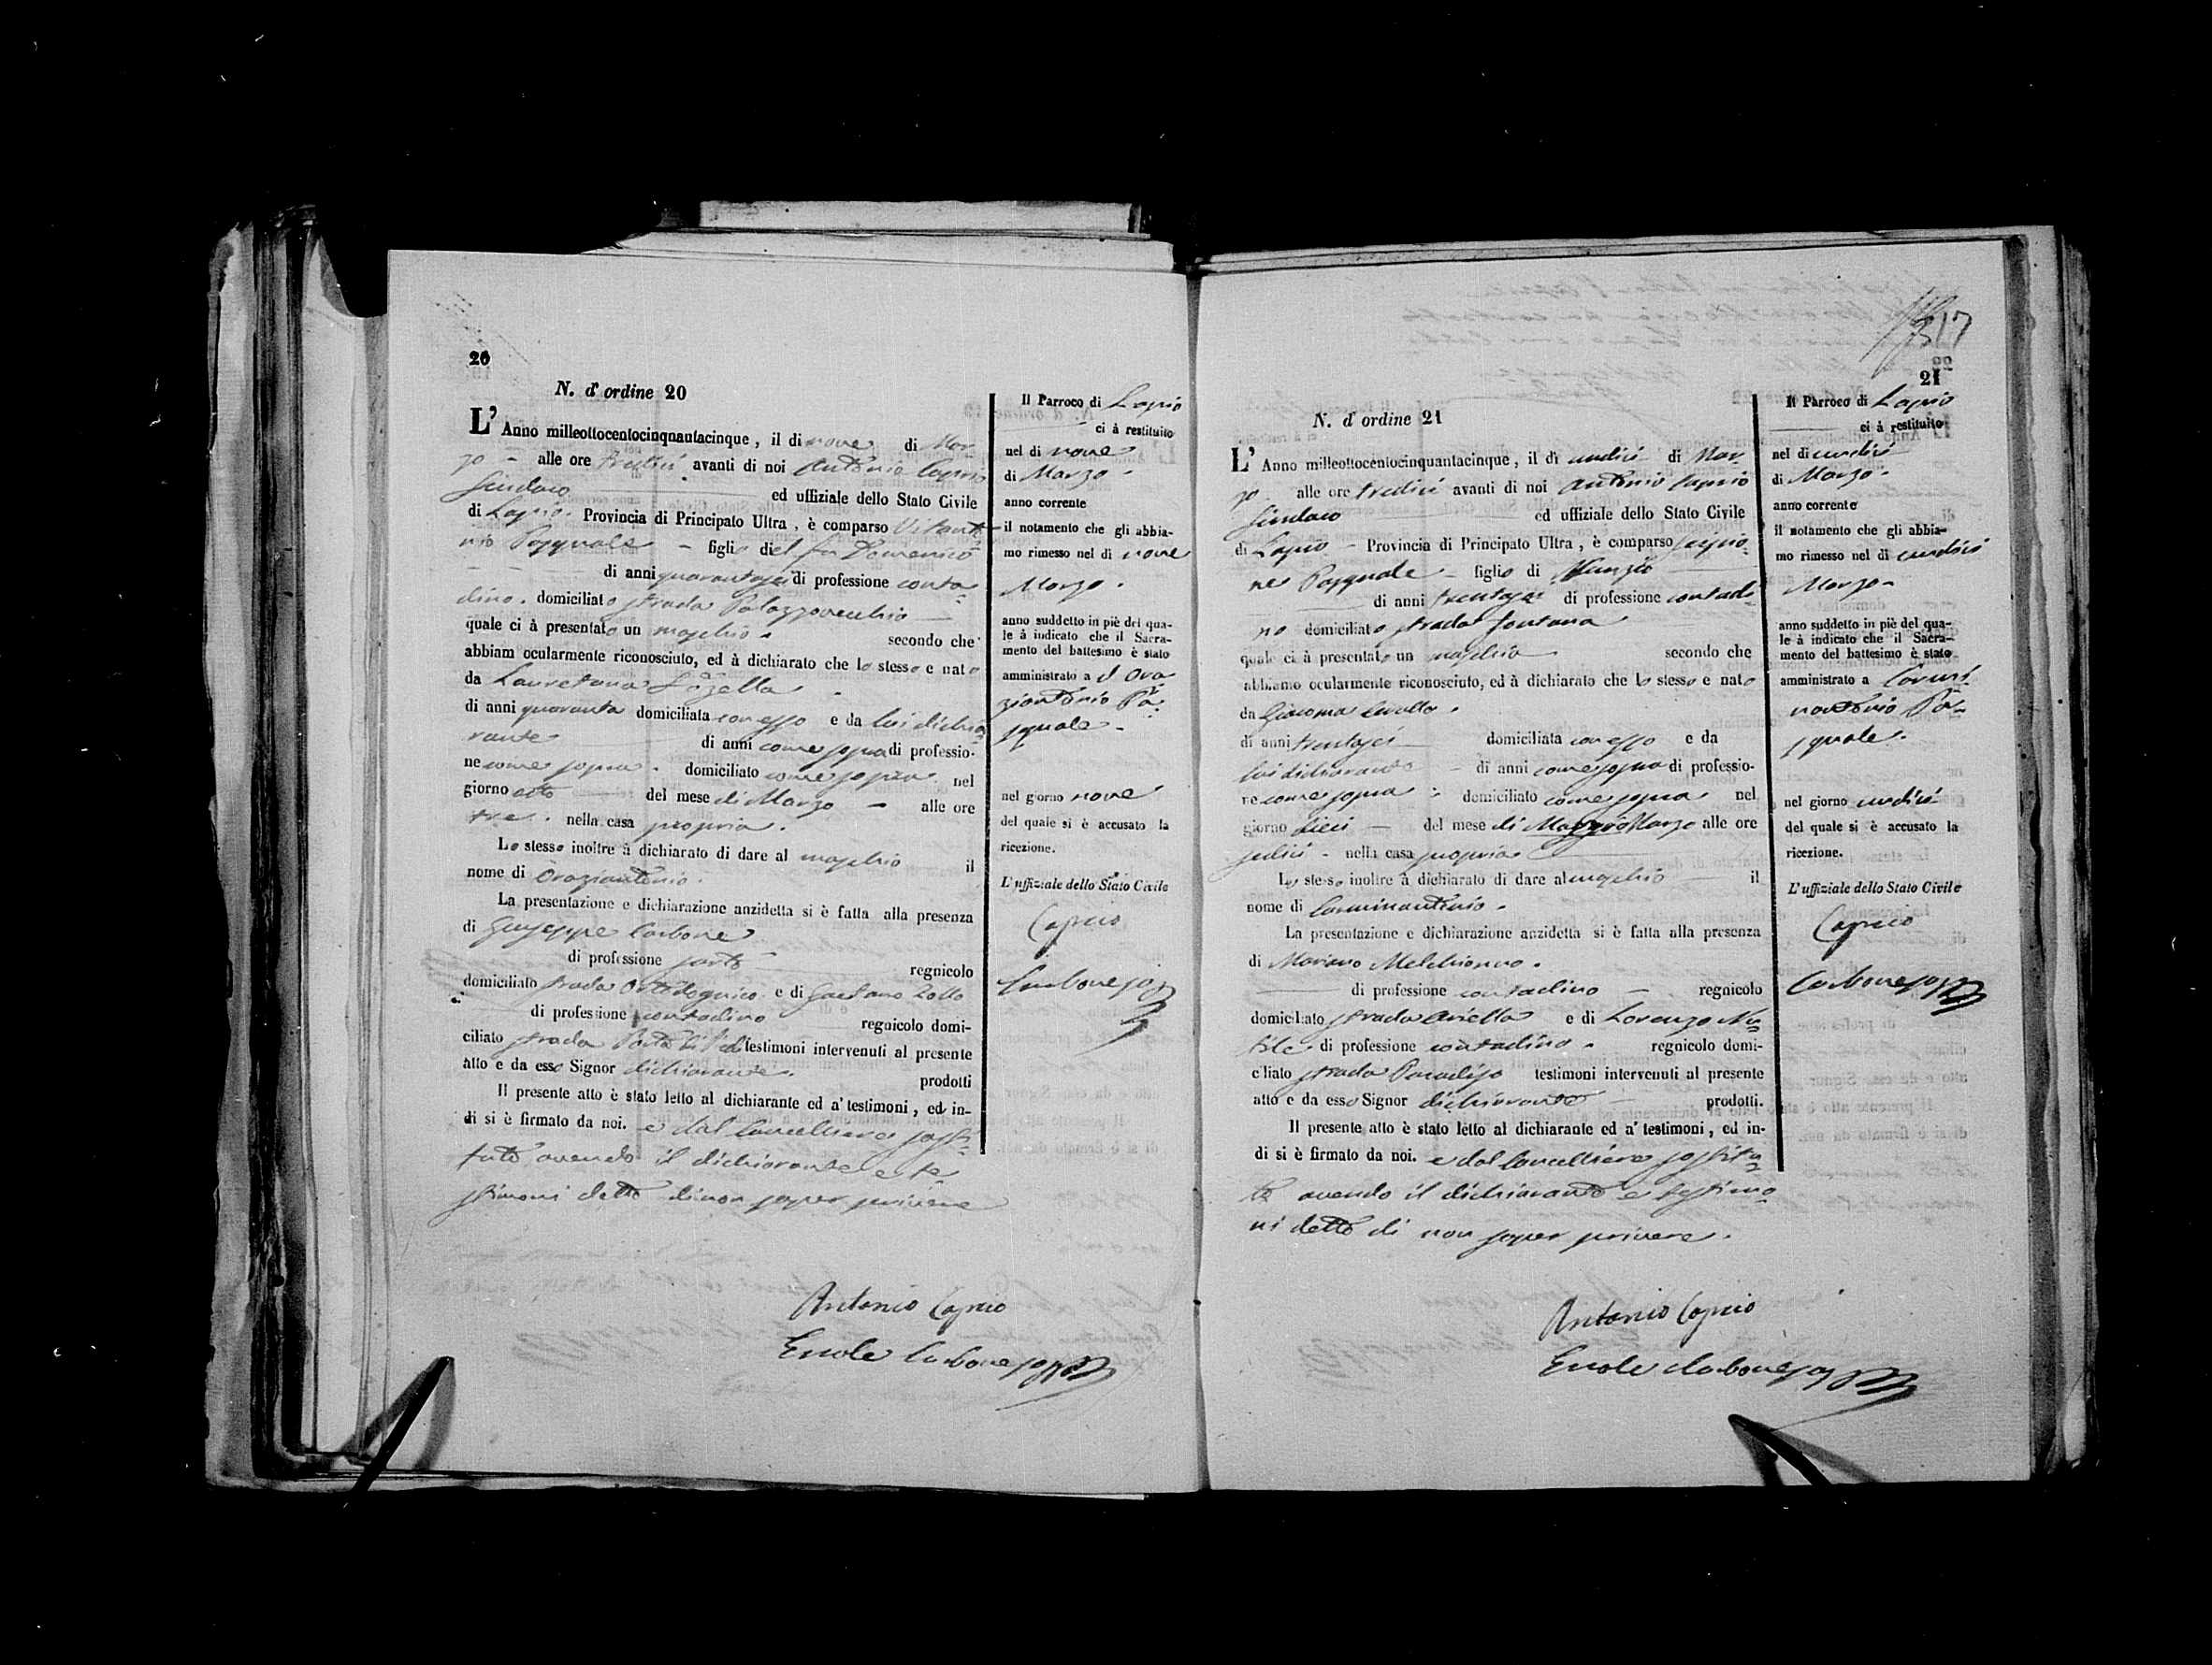 20
N. d' ordine 20
L' Anno milleottocentocinquantacinque, il di nove di Mar-
zo - alle ore tredici avanti di noi Antonio Caprio
Sindaco ed uffiziale dello Stato Civile
di Lapio. Provincia di Principato Ultra, è comparso Vitanto-
nio Pasquale - figlio del fu Domenico
di anni quarantasei di professione conta-
dino. domiciliato strada Palazzovecchio
quale ci à presentato un maschio secondo che
abbiam ocularmente riconosciuto, ed à dichiarato che lo stesso e nato
da Lauretana
di anni quaranta domiciliata con esso e da lui dichia-
rante di anni come sopra di professio-
ne come sopra. domiciliato come sopra nel
giorno otto del mese di Marzo - alle ore
tre. nella casa propria.
Lo stesso inoltre à dichiarato di dare al maschio il
nome di Oraziantonio.
La presentazione e dichiarazione anzidetta si è fatta alla presenza
di Giuseppe Carbone
di professione sarto regnicolo
domiciliato strada e di Gaetano Zollo
di professione contadino regnicolo domi-
ciliato strada Porta di testimoni intervenuti al presente
atto e da esso Signor dichiarante. prodotti
Il presente atto è stato letto al dichiarante ed a' testimoni, ed in-
di si è firmato da noi. e dal Cancelliere sosti-
tuto avendo il dichiarante e te
stimoni detto di non saper scrivere
Antonio Caprio
Ercole Carbone sosto
Il Parroco di Lapio
ci à restituito
nel di nove
di Marzo -
anno corrente
il notamento che gli abbia-
mo rimesso nel di nove
Marzo.
anno suddetto in piè del qua-
le à indicato che il Sacra-
mento del battesimo è stato
amministrato a d Ora
ziantonio Pa-
squale -
nel giorno nove
del quale si è accusato la
ricezione.
L'uffiziale dello Stato Civile
Caprio
Carbone sosto
317
21
N. d' ordine 21
L' Anno milleottocentocinquantacinque, il di undici di Mar-
zo alle ore tredici avanti di noi Antonio Caprio
Sindaco ed uffiziale dello Stato Civile
di Lapio - Provincia di Principato Ultra, è comparso Scipio-
ne Pasquale - figlio di Nunzio
di anni trentasei di professione contadi-
no domiciliato strada fontana
quale ci à presentato un maschio secondo che
abbiamo ocularmente riconosciuto, ed à dichiarato che lo stesso e nato
da Giacoma
di anni trentasei domiciliata con esso e da
lui dichiarante - di anni come sopra di professio-
ne come sopra domiciliato come sopra nel
giorno dieci - del mese di Marzo alle ore
sedici - nella casa propria
Lo stesso inoltre à dichiarato di dare al maschio il
nome di Carminantonio.
La presentazione e dichiarazione anzidetta si è fatta alla presenza
di Mariano Melchionno.
di professione contadino - regnicolo
domiciliato strada Ariella e di Lorenzo Nu-
di professione contadino. regnicolo domi-
ciliato strada Paradiso testimoni intervenuti al presente
atto e da esso Signor dichiarante - prodotti.
Il presente atto è stato letto al dichiarante ed a' testimoni, ed in-
di si è firmato da noi. e dal Cancelliere sostitu-
to avendo il dichiarante e testimo-
ni detto di non saper scrivere.
Antonio Caprio
Ercole Carbone sosto
Il Parroco di Lapio
ci à restituito
nel di undici
di Marzo.
anno corrente
il notamento che gli abbia-
mo rimesso nel di undici
Marzo-
anno suddetto in piè del qua-
le à indicato che il Sacra-
mento del battesimo è stato
amministrato a Carmi-
nantonio Pa-
squale.
nel giorno undici
del quale si è accusato la
ricezione.
L'uffiziale dello Stato Civile
Caprio
Carbone sosto